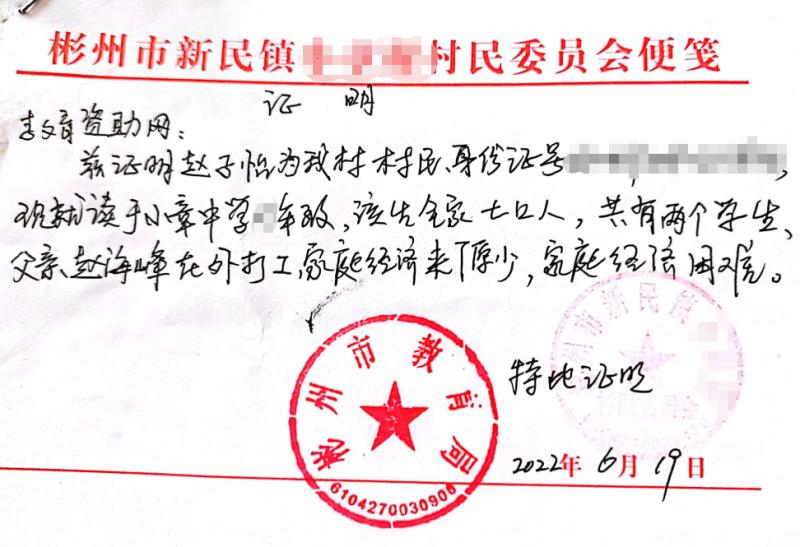 彬州市新民镇 村民委员会便笺
证 明
教育资助网：
兹证明赵子怡为我村村民,身份证号 ,
现就读于小章中学 年级,该生全家七口人,共有两个学生、
父亲赵海峰在外打工,家庭经济来源少,家庭经济困难。
特此证明
2022年6月19日
彬州市教育局
6104270030906
彬州市新民镇
村民委员会